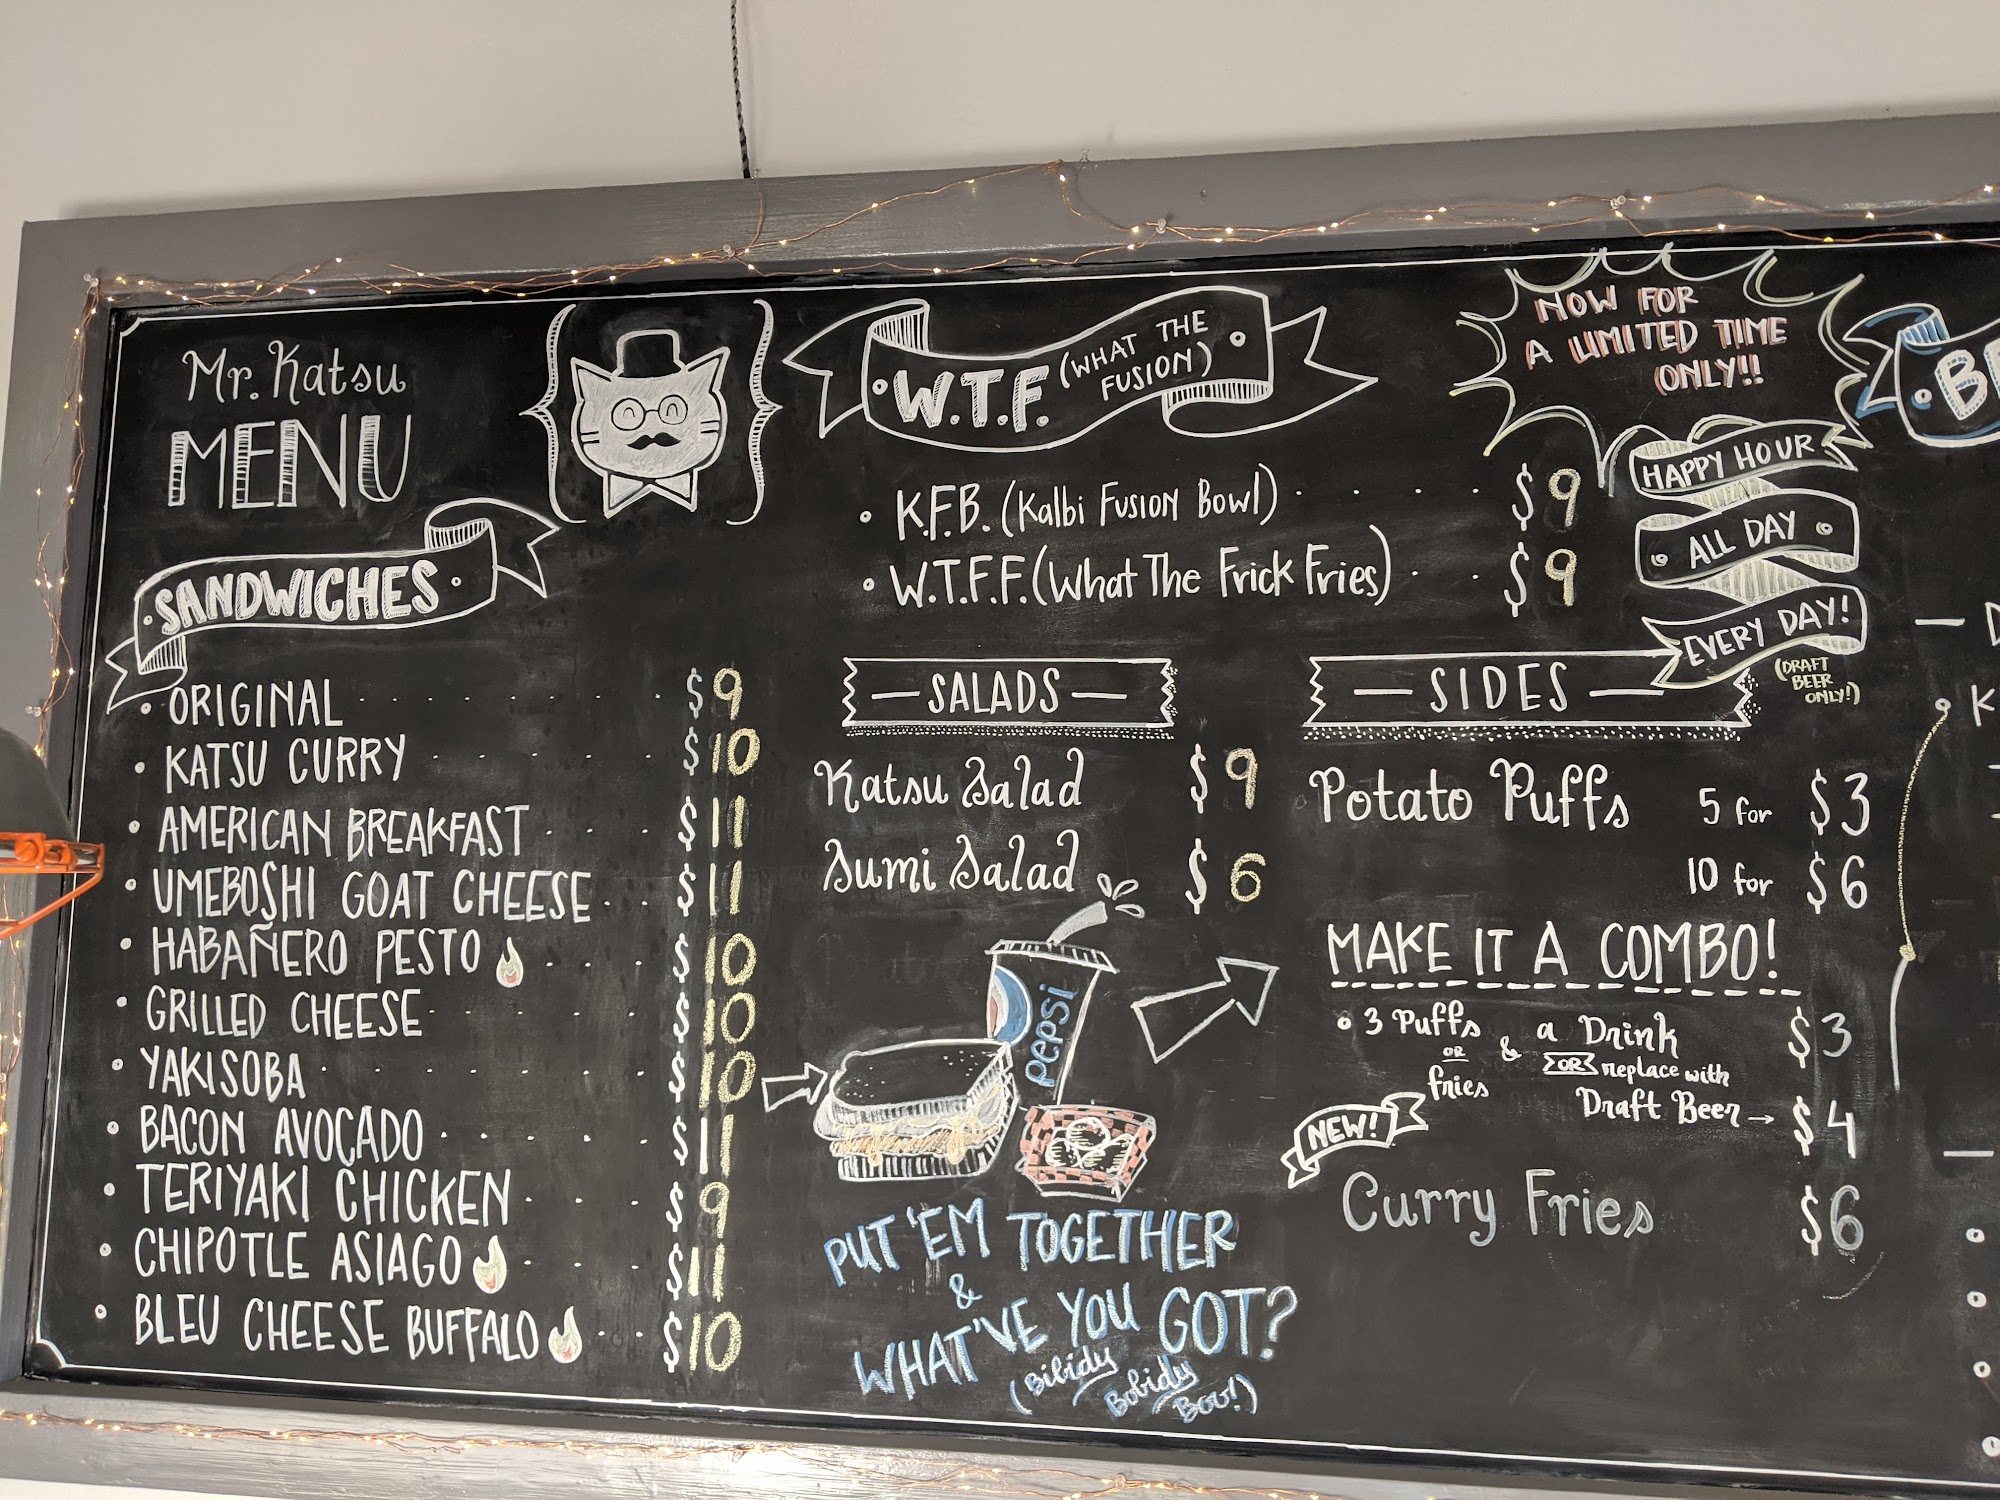 Mr. Katsu
MENU
SANDWICHES
ORIGINAL . . . . . . $9
KATSU CURRY . . . . . $10
AMERICAN BREAKFAST . . . $11
UMEBOSHI GOAT CHEESE . . $11
HABAÑERO PESTO . . . $10
GRILLED CHEESE . . . . . $10
YAKISOBA . . . . . . . $10
BACON AVOCADO . . . . . $11
TERIYAKI CHICKEN . . . . $9
CHIPOTLE ASIAGO . . . $11
BLEU CHEESE BUFFALO . . $10
W.T.F. (WHAT THE
FUSION)
K.F.B. (Kalbi Fusion Bowl) . . . . . $9
W.T.F.F. (What The Frick Fries) . . . $9
— SALADS —
Katsu Salad $9
Sumi Salad $6
pepsi
PUT 'EM TOGETHER
&
WHAT'VE YOU GOT?
(Bibidy
Bobidy
Boo!)
NOW FOR
A LIMITED TIME
ONLY!!
HAPPY HOUR
ALL DAY
EVERY DAY!
(DRAFT
BEER
ONLY!)
— SIDES —
Potato Puffs 5 for $3
10 for $6
MAKE IT A COMBO!
3 Puffs & a Drink $3
OR OR replace with
fries Draft Beer → $4
NEW!
Curry Fries $6